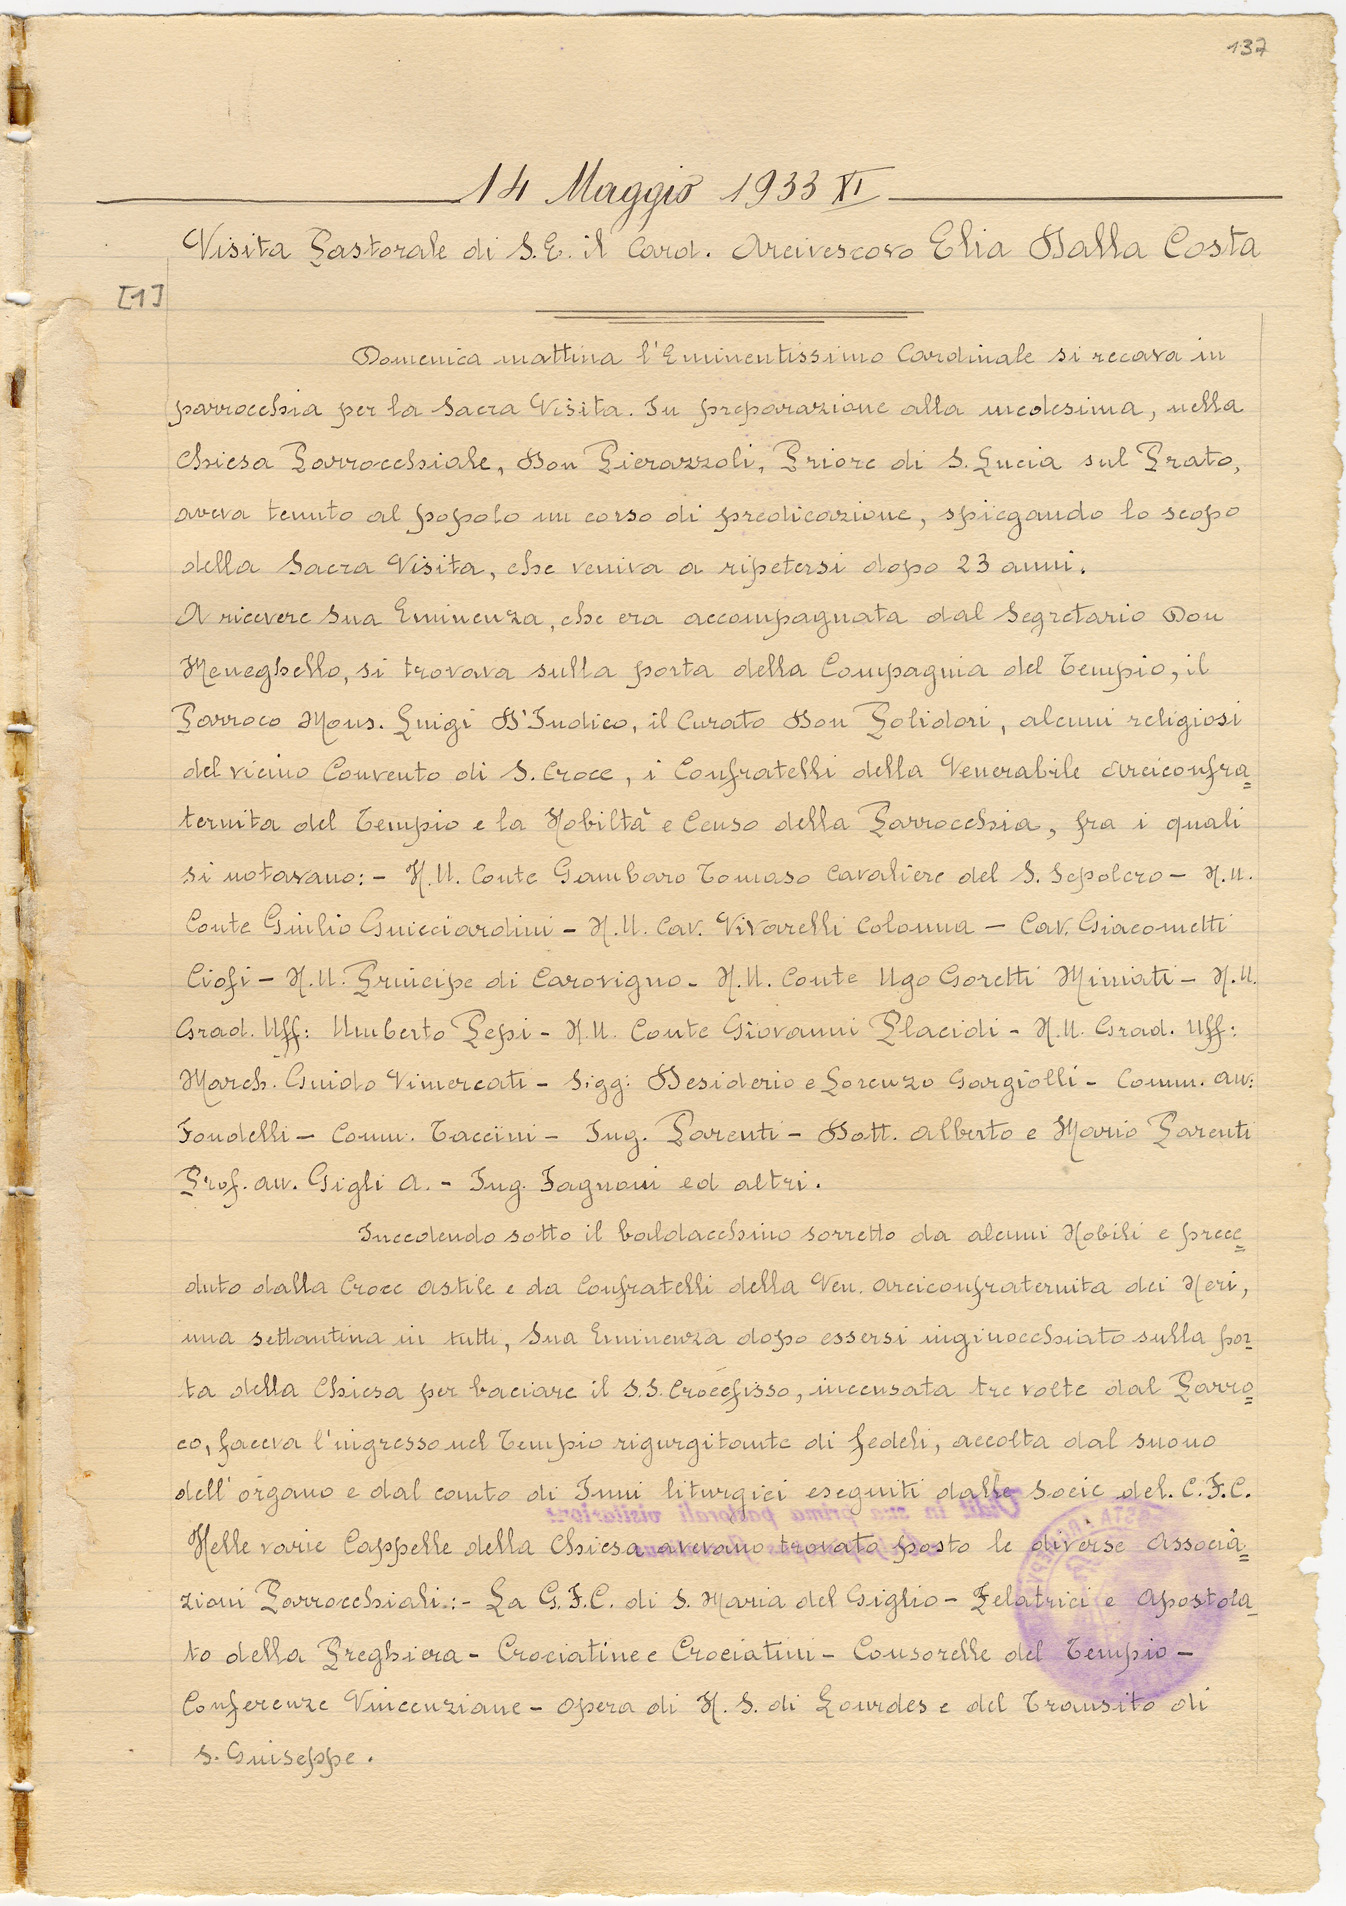 137
14 Maggio 1933 XI
Visita Pastorale di S.E. il Card. Arcivescovo Elia Dalla Costa
[1]
Domenica mattina l'Eminentissimo Cardinale si recava in
parrocchia per la Sacra Visita. In preparazione alla medesima, nella
Chiesa Parrocchiale, Don Pierazzoli, Priore di S. Lucia sul Prato,
aveva tenuto al popolo un corso di predicazione, spiegando lo scopo
della Sacra Visita, che veniva a ripetersi dopo 23 anni.
A ricevere Sua Eminenza, che era accompagnata dal Segretario Don
Meneghello, si trovava sulla porta della Compagnia del Tempio, il
Parroco Mons. Luigi D'Indico, il Curato Don Polidori, alcuni religiosi
del vicino Convento di S. Croce, i Confratelli della Venerabile Arciconfra=
ternita del Tempio e la Nobiltà e Censo della Parrocchia, fra i quali
si notavano:- N.U. Conte Gambaro Tomaso Cavaliere del S. Sepolcro - N.U.
Conte Giulio Guicciardini - N.U. Cav. Vivarelli Colonna - Cav. Giacometti
Ciofi - N.U. Principe di Carovigno - N.U. Conte Ugo Goretti Miniati - N.U.
Grad. Uff: Umberto Pepi - N.U. Conte Giovanni Placidi - N.U. Grad. Uff:
March. Guido Vimercati - Sigg: Desiderio e Lorenzo Gargiolli - Comm. av:
Fondelli - Comm. Taccini - Ing. Parenti - Dott. Alberto e Mario Parenti
Prof. av. Gigli A. - Ing. Fagnoni ed altri.
Incedendo sotto il baldacchino sorretto da alcuni Nobili e prece=
duto dalla Croce astile e da Confratelli della Ven. Arciconfraternita dei Neri,
una settantina in tutti, Sua Eminenza dopo essersi inginocchiato sulla por=
ta della Chiesa per baciare il S.S. Crocefisso, incensata tre volte dal Parro=
co, faceva l'ingresso nel Tempio rigurgitante di fedeli, accolta dal suono
dell'organo e dal canto di Inni liturgici eseguiti dalle Socie del. C.F.C.
Nelle varie Cappelle della Chiesa avevano trovato posto le diverse Associa=
zioni Parrocchiali:- La G.F.C. di S. Maria del Giglio - Zelatrici e Apostola=
to della Preghiera - Crociatine e Crociatini - Consorelle del Tempio -
Conferenze Vincenziane - Opera di N. S. di Lourdes e del Transito di
S. Guiseppe.